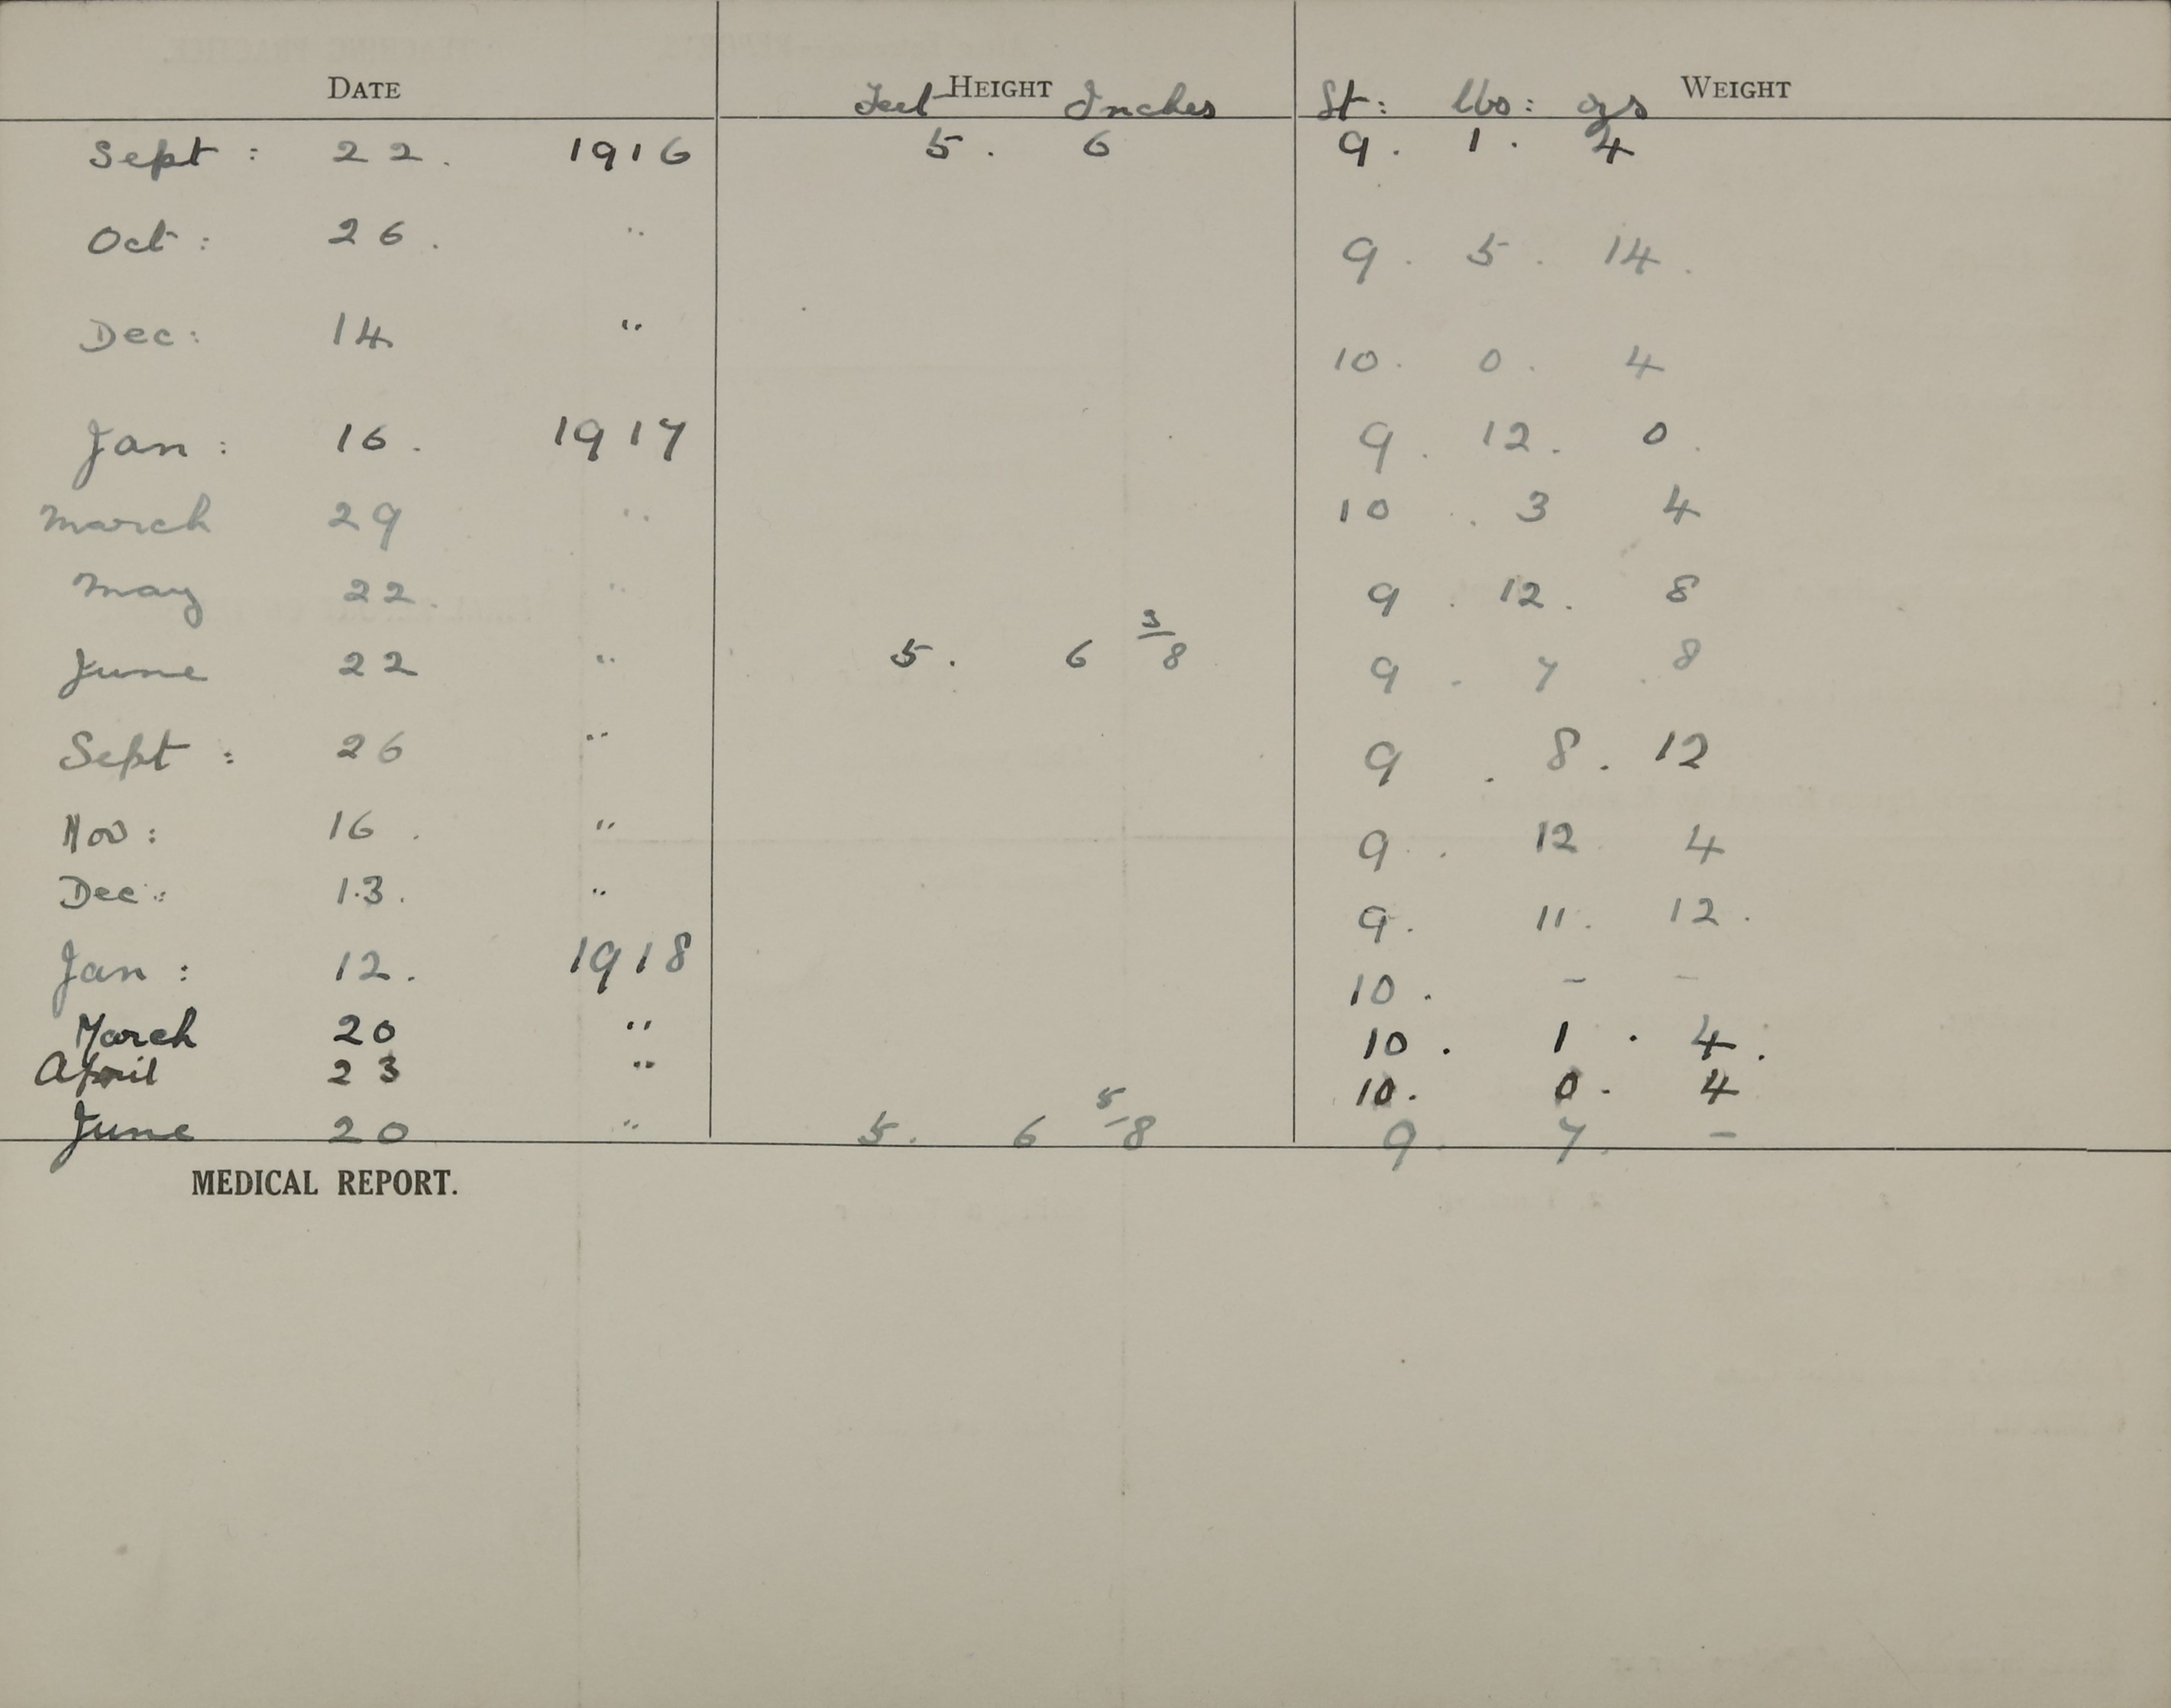 DATE HEIGHT WEIGHT
Feet Inches St: lbs: ozs
Sept: 22. 1916 5. 6 9. 1. 4
Oct: 26. " 9. 5. 14.
Dec: 14 " 10. 0. 4
Jan: 16. 1917 9. 12. 0.
March 29 " 10. 3 4
May 22. " 9. 12. 8
June 22 " 5. 6 3/8 9. 7. 8
Sept: 26 " 9. 8. 12
Nov: 16. " 9. 12 4
Dec: 13. " 9. 11. 12.
Jan: 12. 1918 10. - -
March 20 " 10. 1. 4.
April 23 " 10. 0. 4
June 20 " 5. 6 5/8 9. 7. -
MEDICAL REPORT.